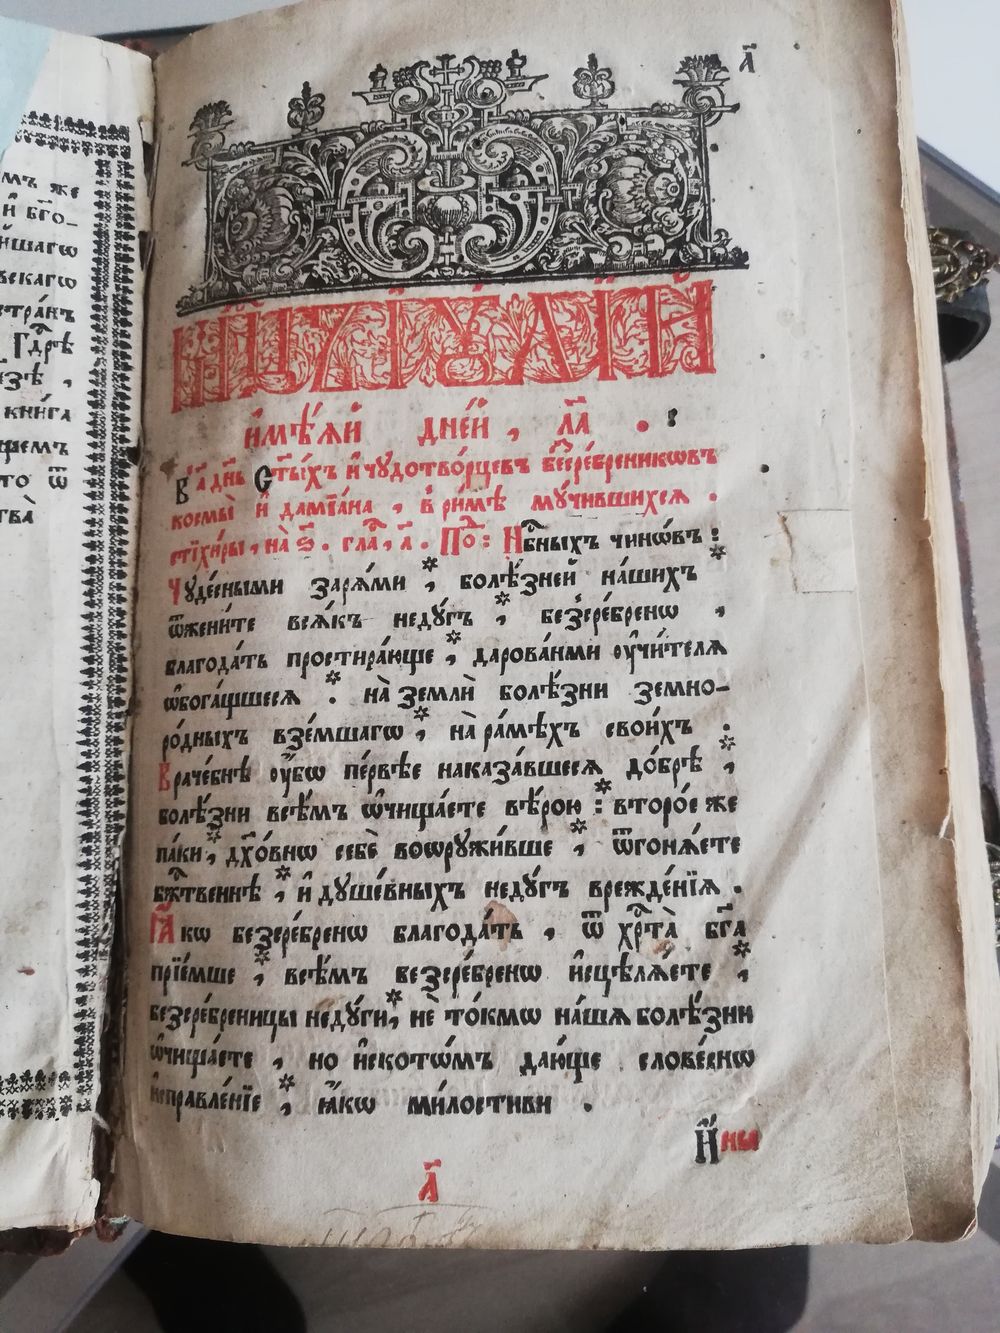 мъ же
и҆ бг҃о-
йшагѡ
вскагѡ
стра́нъ
Гдⷭ҇рѣ
ѕѣ ,
кни́га
щемъ
то ѿ
тва̀
а҃
Мⷭ҇цъ І҆ꙋ́лїй
и҆мѣ́ѧй дне́й , л҃а .
В̾ а҃ дн҃ь Ст҃ы́хъ и҆ чꙋдотво́рцєвъ безсре́бреникѡвъ
космы̀ и҆ дамїа́на , в̾ ри́мѣ мꙋ́чившихсѧ .
стїхи́ры , на̀ ѕ҃ . гла́ , а҃ . Поⷣ : Нбⷭ҇ныхъ чинѡ́въ :
Чꙋде́сными зарѧ́ми , * болѣ́зней на́шихъ *
ѿжени́те всѧ́къ недꙋ́гъ , * безсре́бренѡ ,
благода́ть простира́юще , * дарова́нми ᲂу҆чи́телѧ
ѡ҆бога́щшесѧ . * на̀ землѝ болѣ́зни земно-
ро́дныхъ взе́мшагѡ , * на̀ ра́мѣхъ свои́хъ .
Враче́бнѣ ᲂу҆́бѡ пе́рвѣе наказа́вшеесѧ до́брѣ , *
болѣ́зни всѣ́мъ ѡ҆чища́ете вѣ́рою : * второ́е же
па́ки , * дх҃о́внѡ себѐ воѡрꙋжи́вше , * ѿгонѧ́ете
бжⷭ҇твеннѣ , * и҆ дꙋше́вныхъ недꙋ́гъ врежде́нїѧ .
Ꙗ҆́кѡ безсре́бренѡ благода́ть , ѿ хрⷭ҇та̀ бг҃а
прїе́мше , * всѣ́мъ безсре́бренѡ и҆сцѣлѧ́ете , *
безсре́бреницы недꙋ́ги , * не то́кмѡ на́шѧ болѣ́зни
ѡ҆чища́ете , но и҆ скотѡ́мъ даю́ще слове́снѡ
и҆справле́нїе , * ꙗ҆́кѡ ми́лостиви .
И҆́ ны
а҃